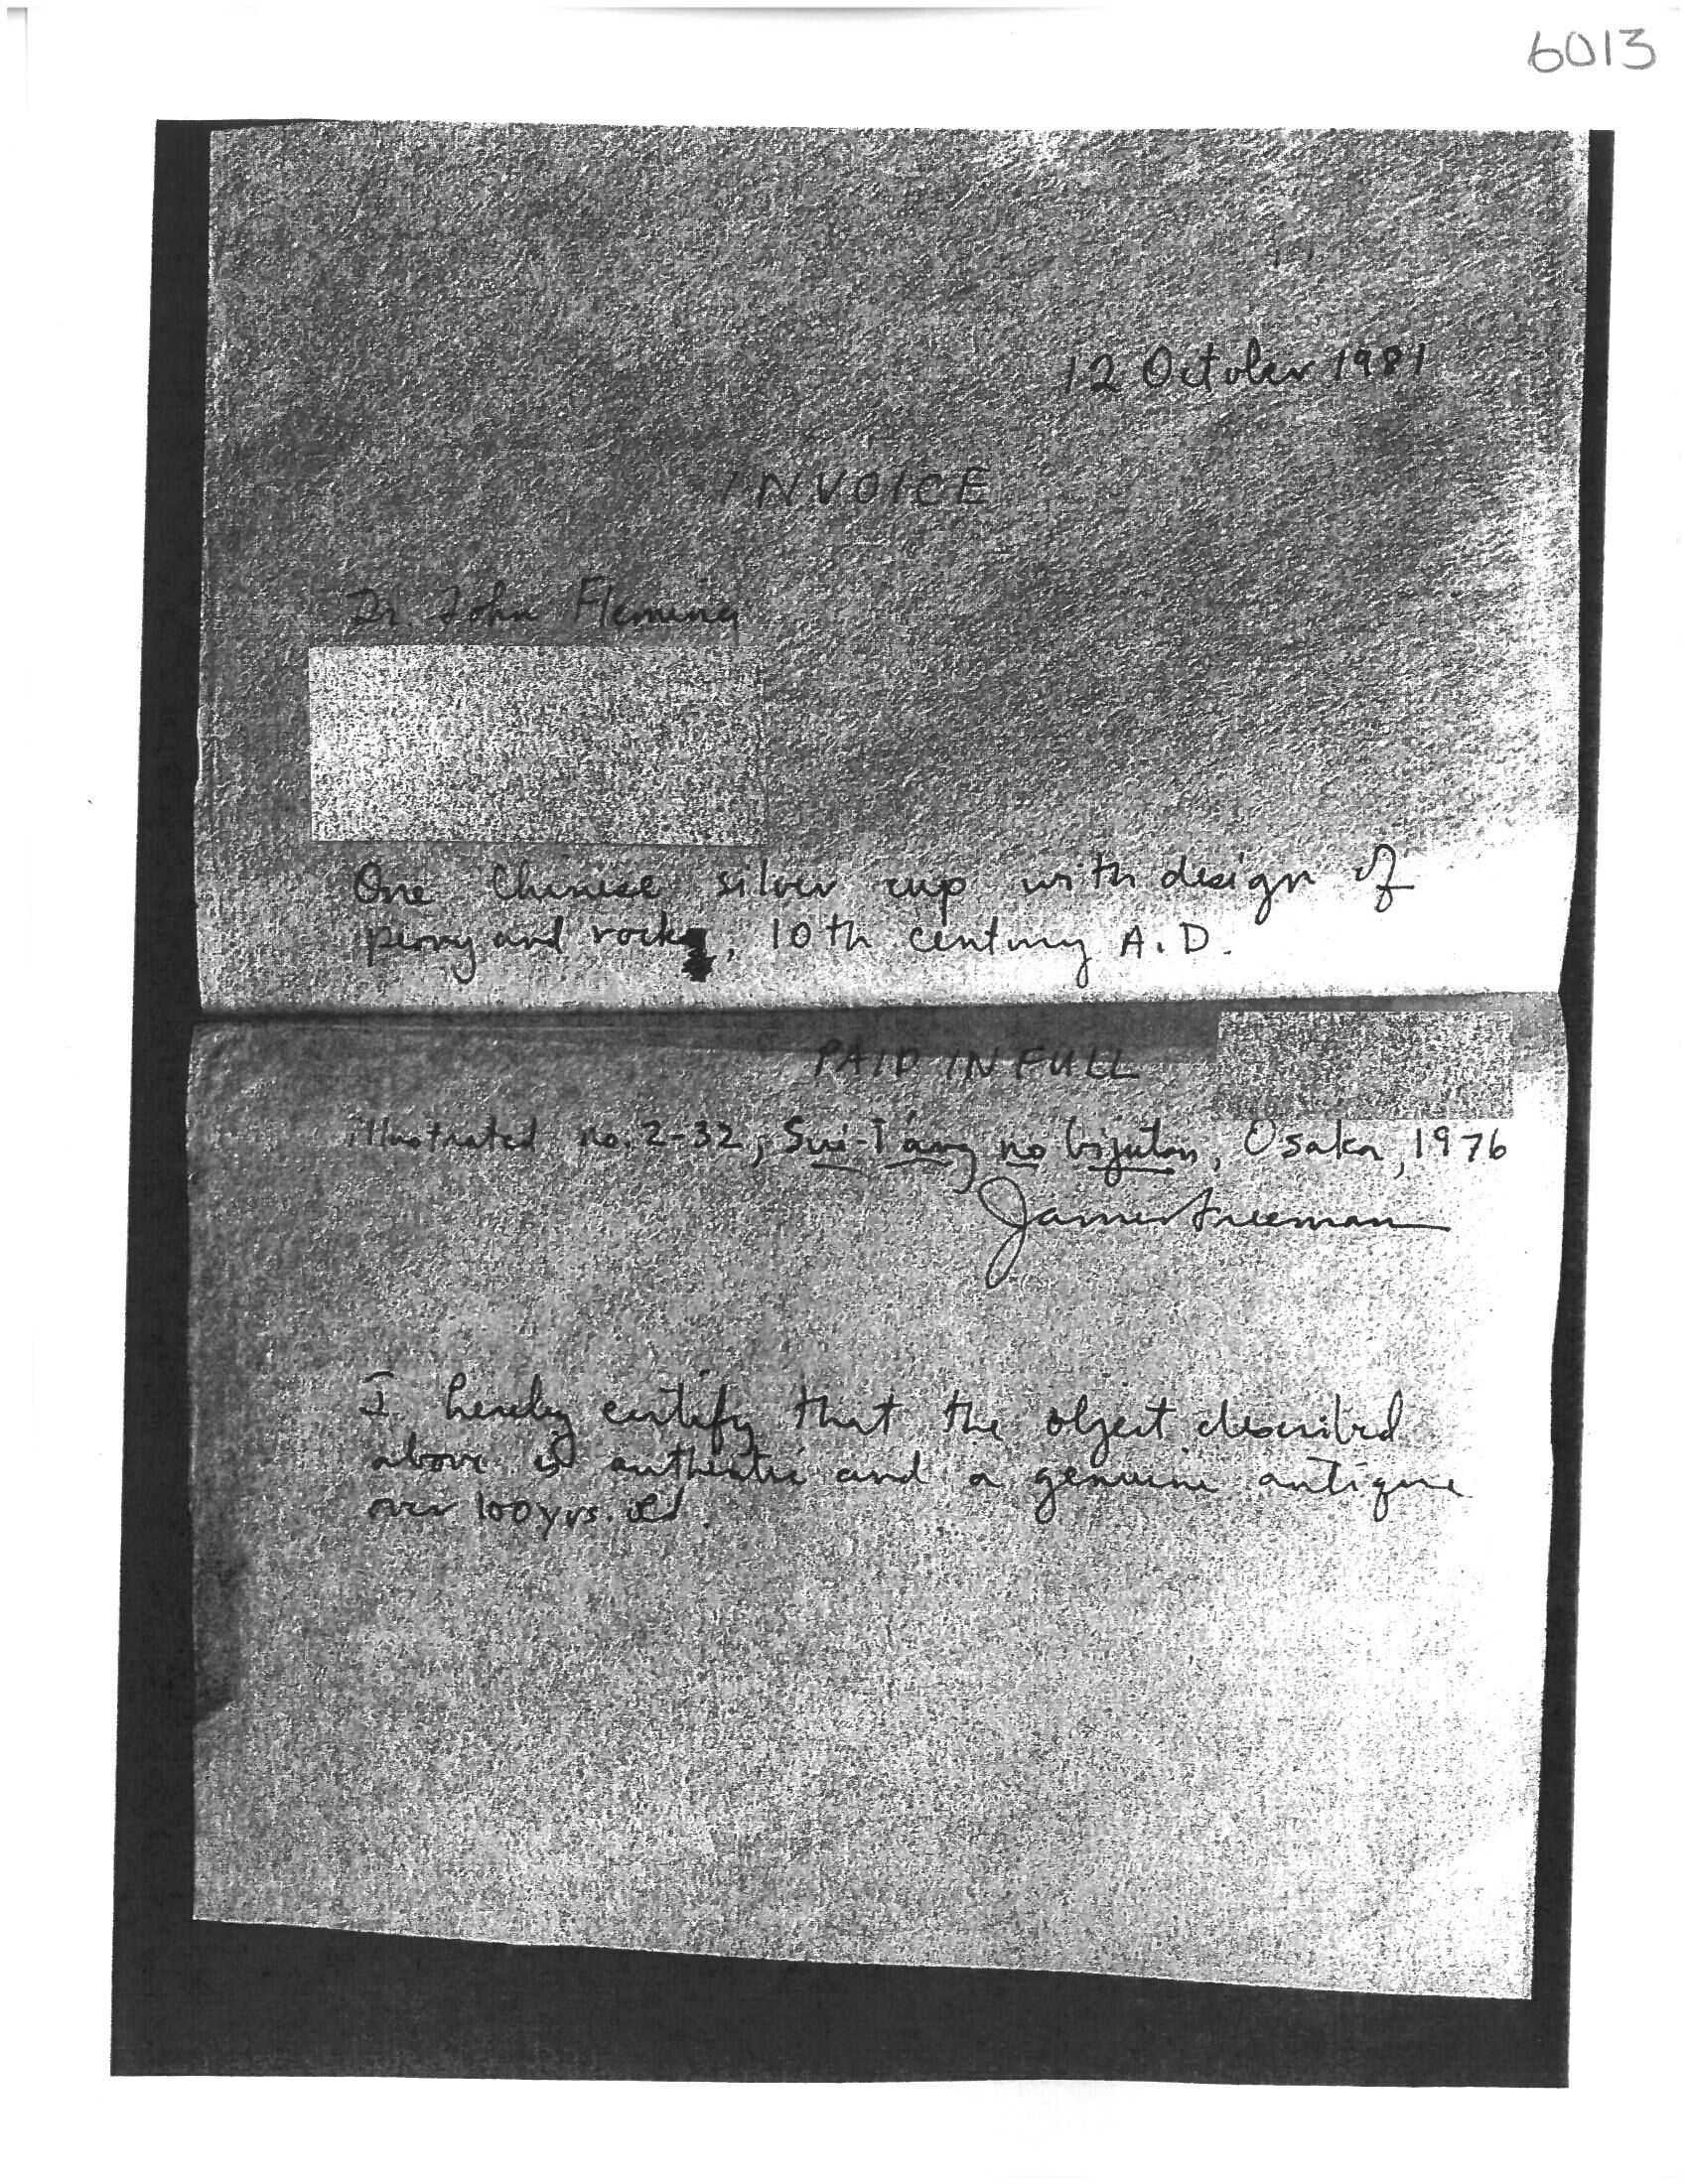 6013
12 October 1981
INVOICE
Dr. John Fleming
One Chinese silver cup with design of
peony and rock, 10th century A.D.
PAID IN FULL
illustrated no. 2-32, Sui-T'ang no bijutsu, Osaka, 1976
James Freeman
I hereby certify that the object described
above is authentic and a genuine antique
over 100 yrs. old.